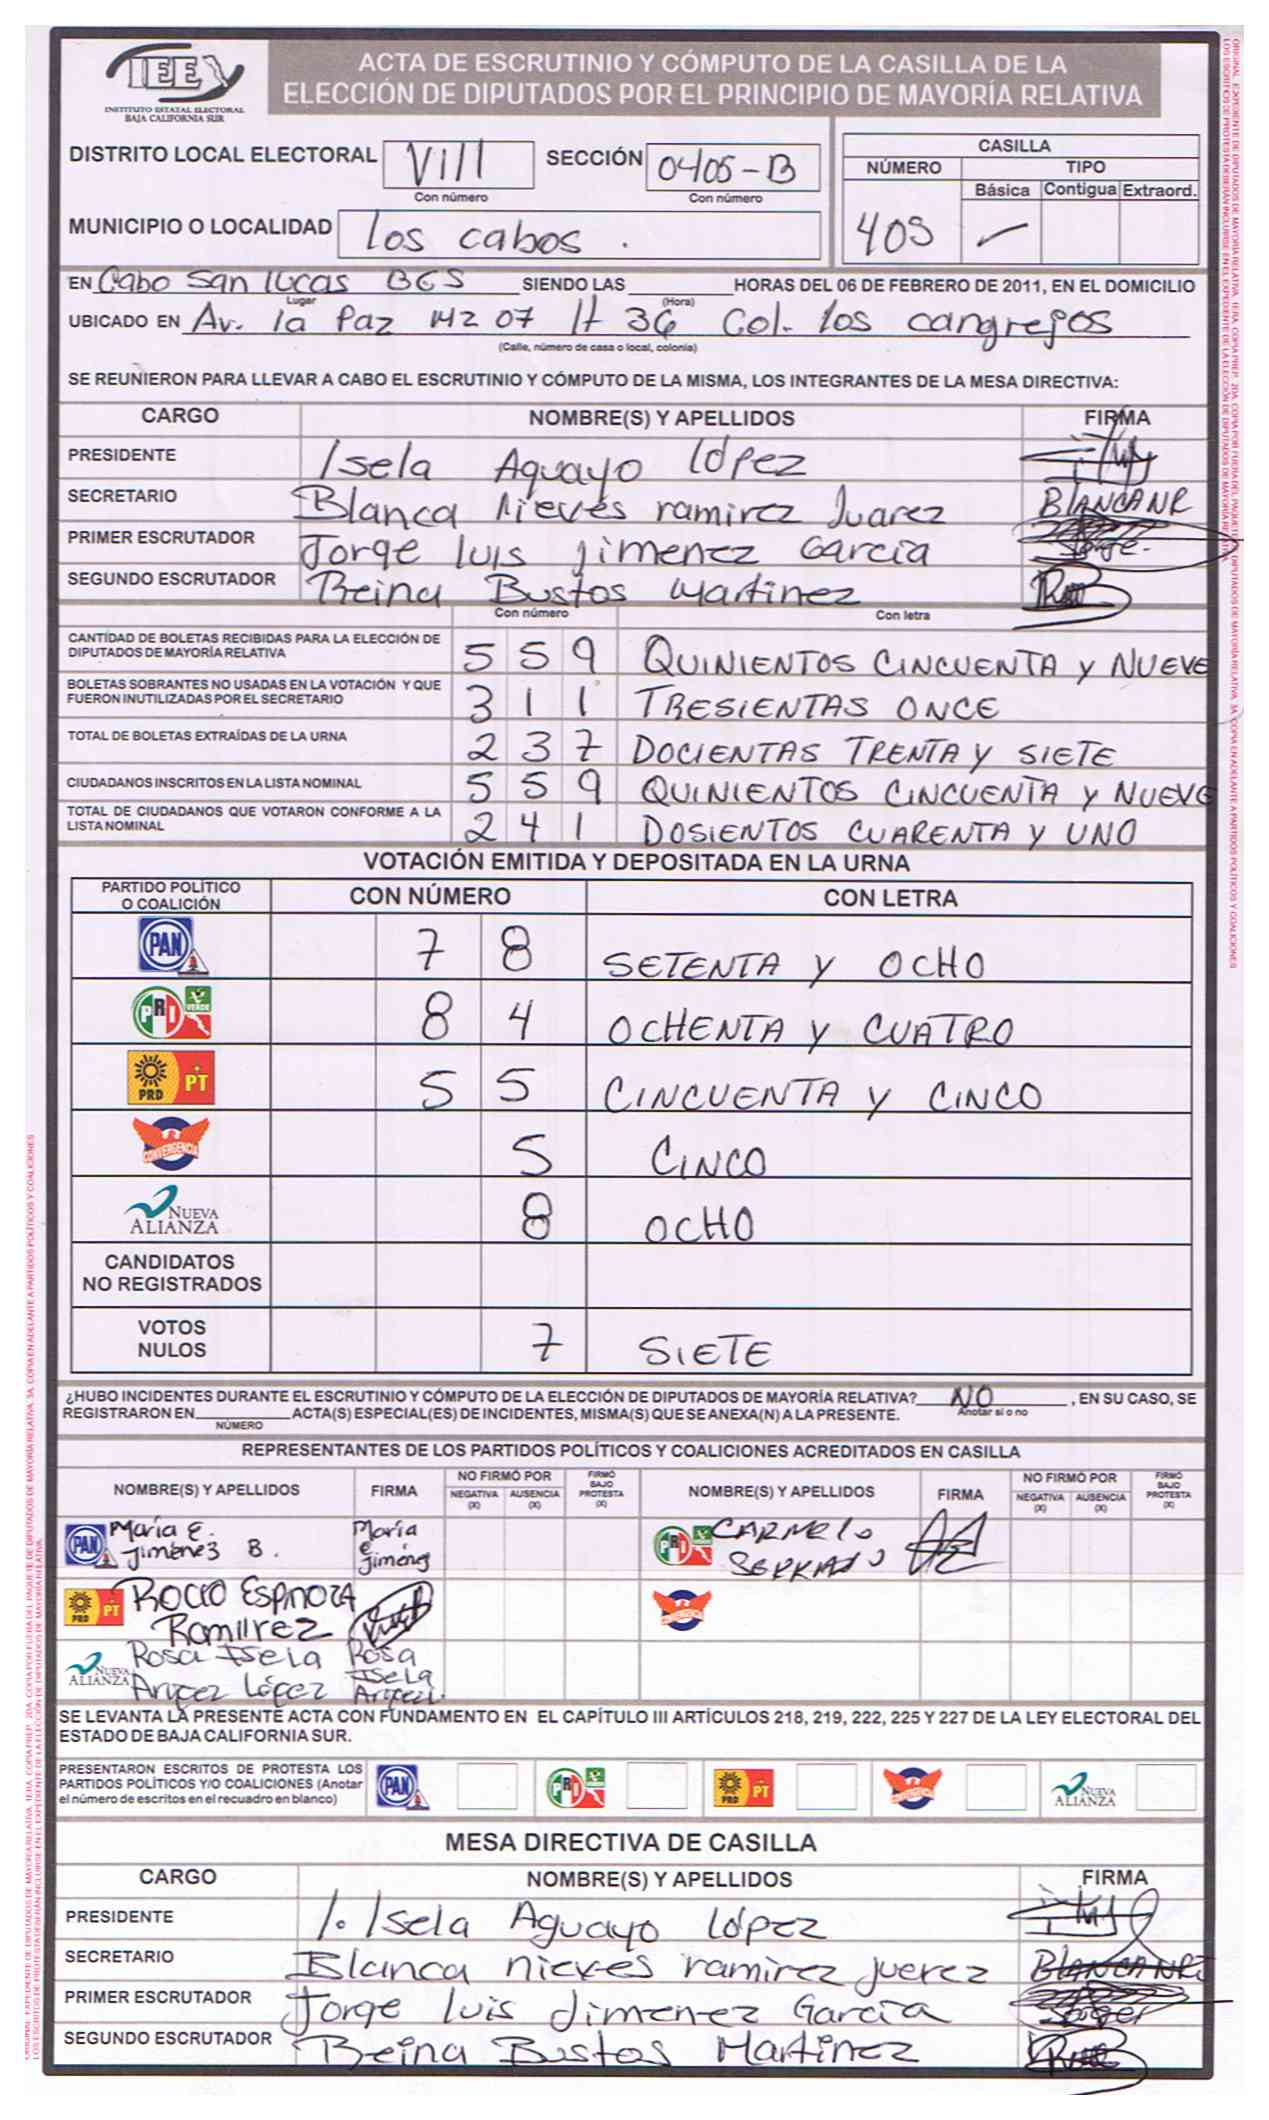 IEE
INSTITUTO ESTATAL ELECTORAL
BAJA CALIFORNIA SUR
ACTA DE ESCRUTINIO Y CÓMPUTO DE LA CASILLA DE LA
ELECCIÓN DE DIPUTADOS POR EL PRINCIPIO DE MAYORÍA RELATIVA
DISTRITO LOCAL ELECTORAL VIII SECCIÓN 0405-B
Con número Con número
CASILLA
NÚMERO TIPO
Básica Contigua Extraord.
405
MUNICIPIO O LOCALIDAD los cabos.
EN Cabo San lucas BCS SIENDO LAS HORAS DEL 06 DE FEBRERO DE 2011, EN EL DOMICILIO
Lugar (Hora)
UBICADO EN Av. la Paz MZ 07 lt 36 Col. los cangrejos
(Calle, número de casa o local, colonia)
SE REUNIERON PARA LLEVAR A CABO EL ESCRUTINIO Y CÓMPUTO DE LA MISMA, LOS INTEGRANTES DE LA MESA DIRECTIVA:
CARGO NOMBRE(S) Y APELLIDOS FIRMA
PRESIDENTE Isela Aguayo lópez
SECRETARIO Blanca Nieves ramirez Juarez BLANCA NR
PRIMER ESCRUTADOR Jorge luis jimenez García Jorge.
SEGUNDO ESCRUTADOR Reina Bustos Martinez
Con número Con letra
CANTIDAD DE BOLETAS RECIBIDAS PARA LA ELECCIÓN DE
DIPUTADOS DE MAYORÍA RELATIVA 559 QUINIENTOS CINCUENTA Y NUEVE
BOLETAS SOBRANTES NO USADAS EN LA VOTACIÓN Y QUE
FUERON INUTILIZADAS POR EL SECRETARIO 311 TRESIENTAS ONCE
TOTAL DE BOLETAS EXTRAÍDAS DE LA URNA 237 DOCIENTAS TRENTA Y SIETE
CIUDADANOS INSCRITOS EN LA LISTA NOMINAL 559 QUINIENTOS CINCUENTA Y NUEVE
TOTAL DE CIUDADANOS QUE VOTARON CONFORME A LA
LISTA NOMINAL 241 DOSIENTOS CUARENTA Y UNO
VOTACIÓN EMITIDA Y DEPOSITADA EN LA URNA
PARTIDO POLÍTICO
O COALICIÓN CON NÚMERO CON LETRA
PAN 78 SETENTA Y OCHO
PRI VERDE 84 OCHENTA Y CUATRO
PRD PT 55 CINCUENTA Y CINCO
CONVERGENCIA 5 CINCO
NUEVA ALIANZA 8 OCHO
CANDIDATOS
NO REGISTRADOS
VOTOS
NULOS 7 SIETE
¿HUBO INCIDENTES DURANTE EL ESCRUTINIO Y CÓMPUTO DE LA ELECCIÓN DE DIPUTADOS DE MAYORÍA RELATIVA? NO , EN SU CASO, SE
Anotar si o no
REGISTRARON EN ACTA(S) ESPECIAL(ES) DE INCIDENTES, MISMA(S) QUE SE ANEXA(N) A LA PRESENTE.
NÚMERO
REPRESENTANTES DE LOS PARTIDOS POLÍTICOS Y COALICIONES ACREDITADOS EN CASILLA
NOMBRE(S) Y APELLIDOS FIRMA NO FIRMÓ POR NEGATIVA (X) AUSENCIA (X) FIRMÓ BAJO PROTESTA (X) NOMBRE(S) Y APELLIDOS FIRMA NO FIRMÓ POR NEGATIVA (X) AUSENCIA (X) FIRMÓ BAJO PROTESTA (X)
PAN María E. Jiménez B. María E Jiménez PRI CARMELO SERRANO
PRD PT ROCIO ESPINOZA Ramirez CONVERGENCIA
NUEVA ALIANZA Rosa Isela López Rosa Isela
SE LEVANTA LA PRESENTE ACTA CON FUNDAMENTO EN EL CAPÍTULO III ARTÍCULOS 218, 219, 222, 225 Y 227 DE LA LEY ELECTORAL DEL
ESTADO DE BAJA CALIFORNIA SUR.
PRESENTARON ESCRITOS DE PROTESTA LOS
PARTIDOS POLÍTICOS Y/O COALICIONES (Anotar
el número de escritos en el recuadro en blanco)
PAN PRI PRD PT CONVERGENCIA NUEVA ALIANZA
MESA DIRECTIVA DE CASILLA
CARGO NOMBRE(S) Y APELLIDOS FIRMA
PRESIDENTE I. Isela Aguayo lópez
SECRETARIO Blanca nieves ramirez juerez BLANCA NR
PRIMER ESCRUTADOR Jorge luis Jimenez García
SEGUNDO ESCRUTADOR Reina Bustos Martinez